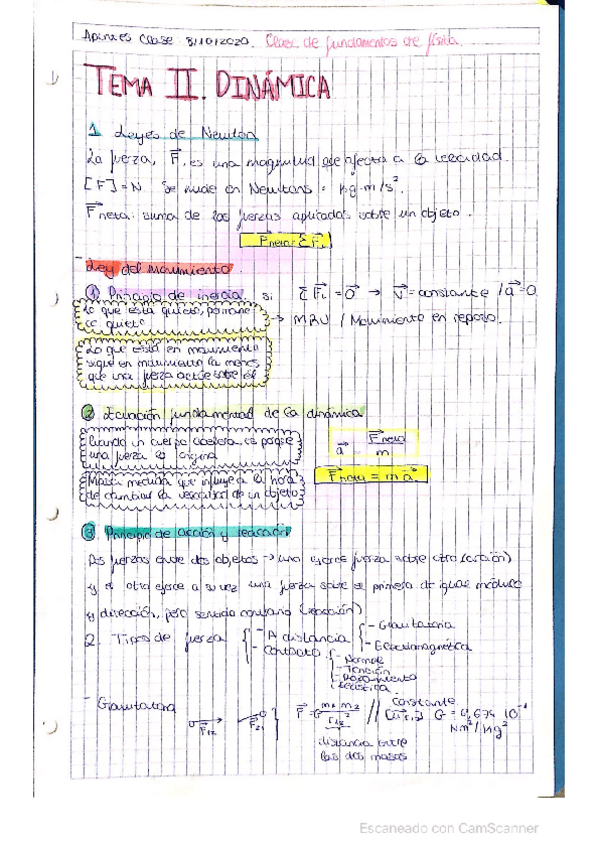 Apuntes Clase 31/10/2020. Clase de fundamentos de física.
TEMA II. DINÁMICA
1. Leyes de Newton
La fuerza, F, es una magnitud que afecta a la velocidad.
[F] = N Se mide en Newtons = kg·m/s².
F neta: suma de las fuerzas aplicadas sobre un objeto.
F neta = Σ Fi
Ley del movimiento.
① Principio de inercia si Σ Fi = 0 → V = constante / a = 0
Lo que está quieto, permane
ce quieto
→ MRU / Movimiento en reposo.
Lo que está en movimiento
sigue en movimiento a menos
que una fuerza actúe sobre él
② Ecuación fundamental de la dinámica
Cuando un cuerpo acelera es porque
una fuerza lo origina
a = F neta / m
Masa: medida que influye a la hora
de cambiar la velocidad de un objeto
F neta = m a
③ Principio de acción y reacción
Dos fuerzas entre dos objetos → uno ejerce fuerza sobre otro (acción)
y el otro ejerce a su vez una fuerza sobre el primero de igual módulo
y dirección, pero sentido contrario (reacción)
2. Tipos de fuerza { - A distancia { - Gravitatoria
- Electromagnética
- Contacto { - Normal
- Tensión
- Rozamiento
- Elástica
- Gravitatoria F12 F21 F = G m1 m2 / r12² // constante
G = 6,674 10
Nm²/kg²
distancia entre
las dos masas
Escaneado con CamScanner